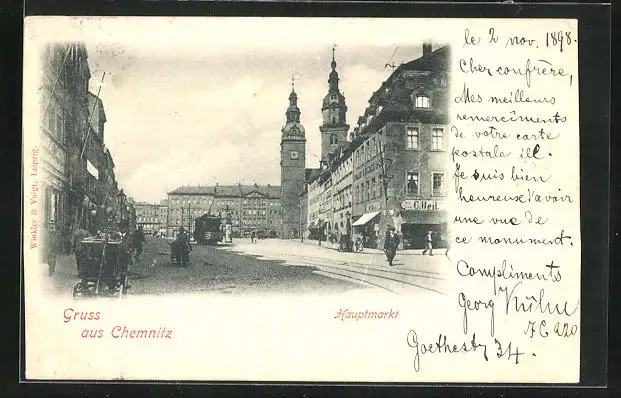 le 2 nov. 1898.
Cher confrère,
Mes meilleurs
remercîments
de votre carte
postale ill.
Je suis bien
heureux d'avoir
une vue de
ce monument.
Compliments
Georg Kühn
Goethestr. 34.
C. Heil
Winkler & Voigt, Leipzig.
Gruss
aus Chemnitz
Hauptmarkt